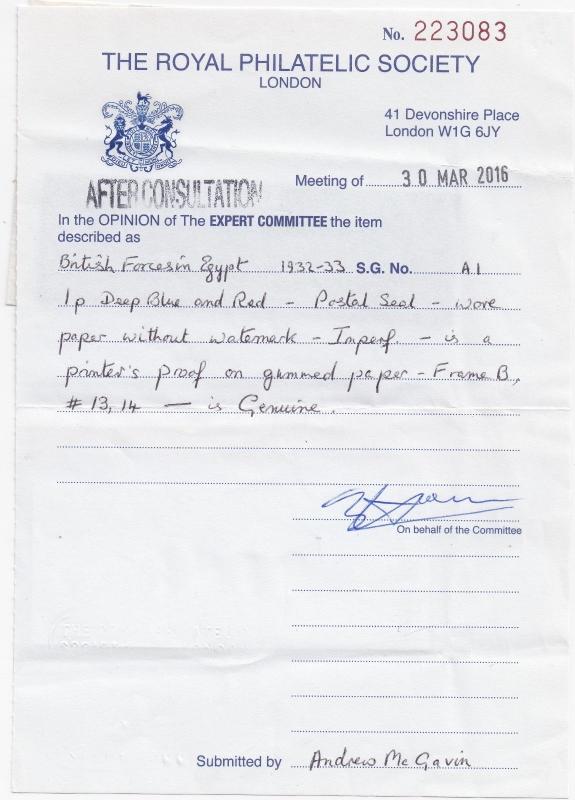 No. 223083
THE ROYAL PHILATELIC SOCIETY
LONDON
41 Devonshire Place
London W1G 6JY
AFTER CONSULTATION
Meeting of 30 MAR 2016
In the OPINION of The EXPERT COMMITTEE the item
described as
British Forces in Egypt 1932-33 S.G. No. A1
1p Deep Blue and Red - Postal Seal - wove
paper without watermark - Imperf. - is a
printer's proof on gummed paper - Frame B,
# 13, 14 - is Genuine.
On behalf of the Committee
Submitted by Andrew McGavin